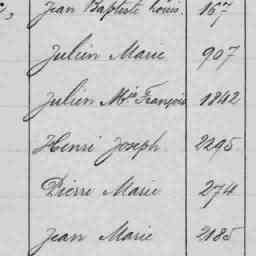 Jean Baptiste Louis. 167
Julien Marie 907
Julien Mie François 1842
Henri Joseph 2295
Pierre Marie 274
Jean Marie 2185